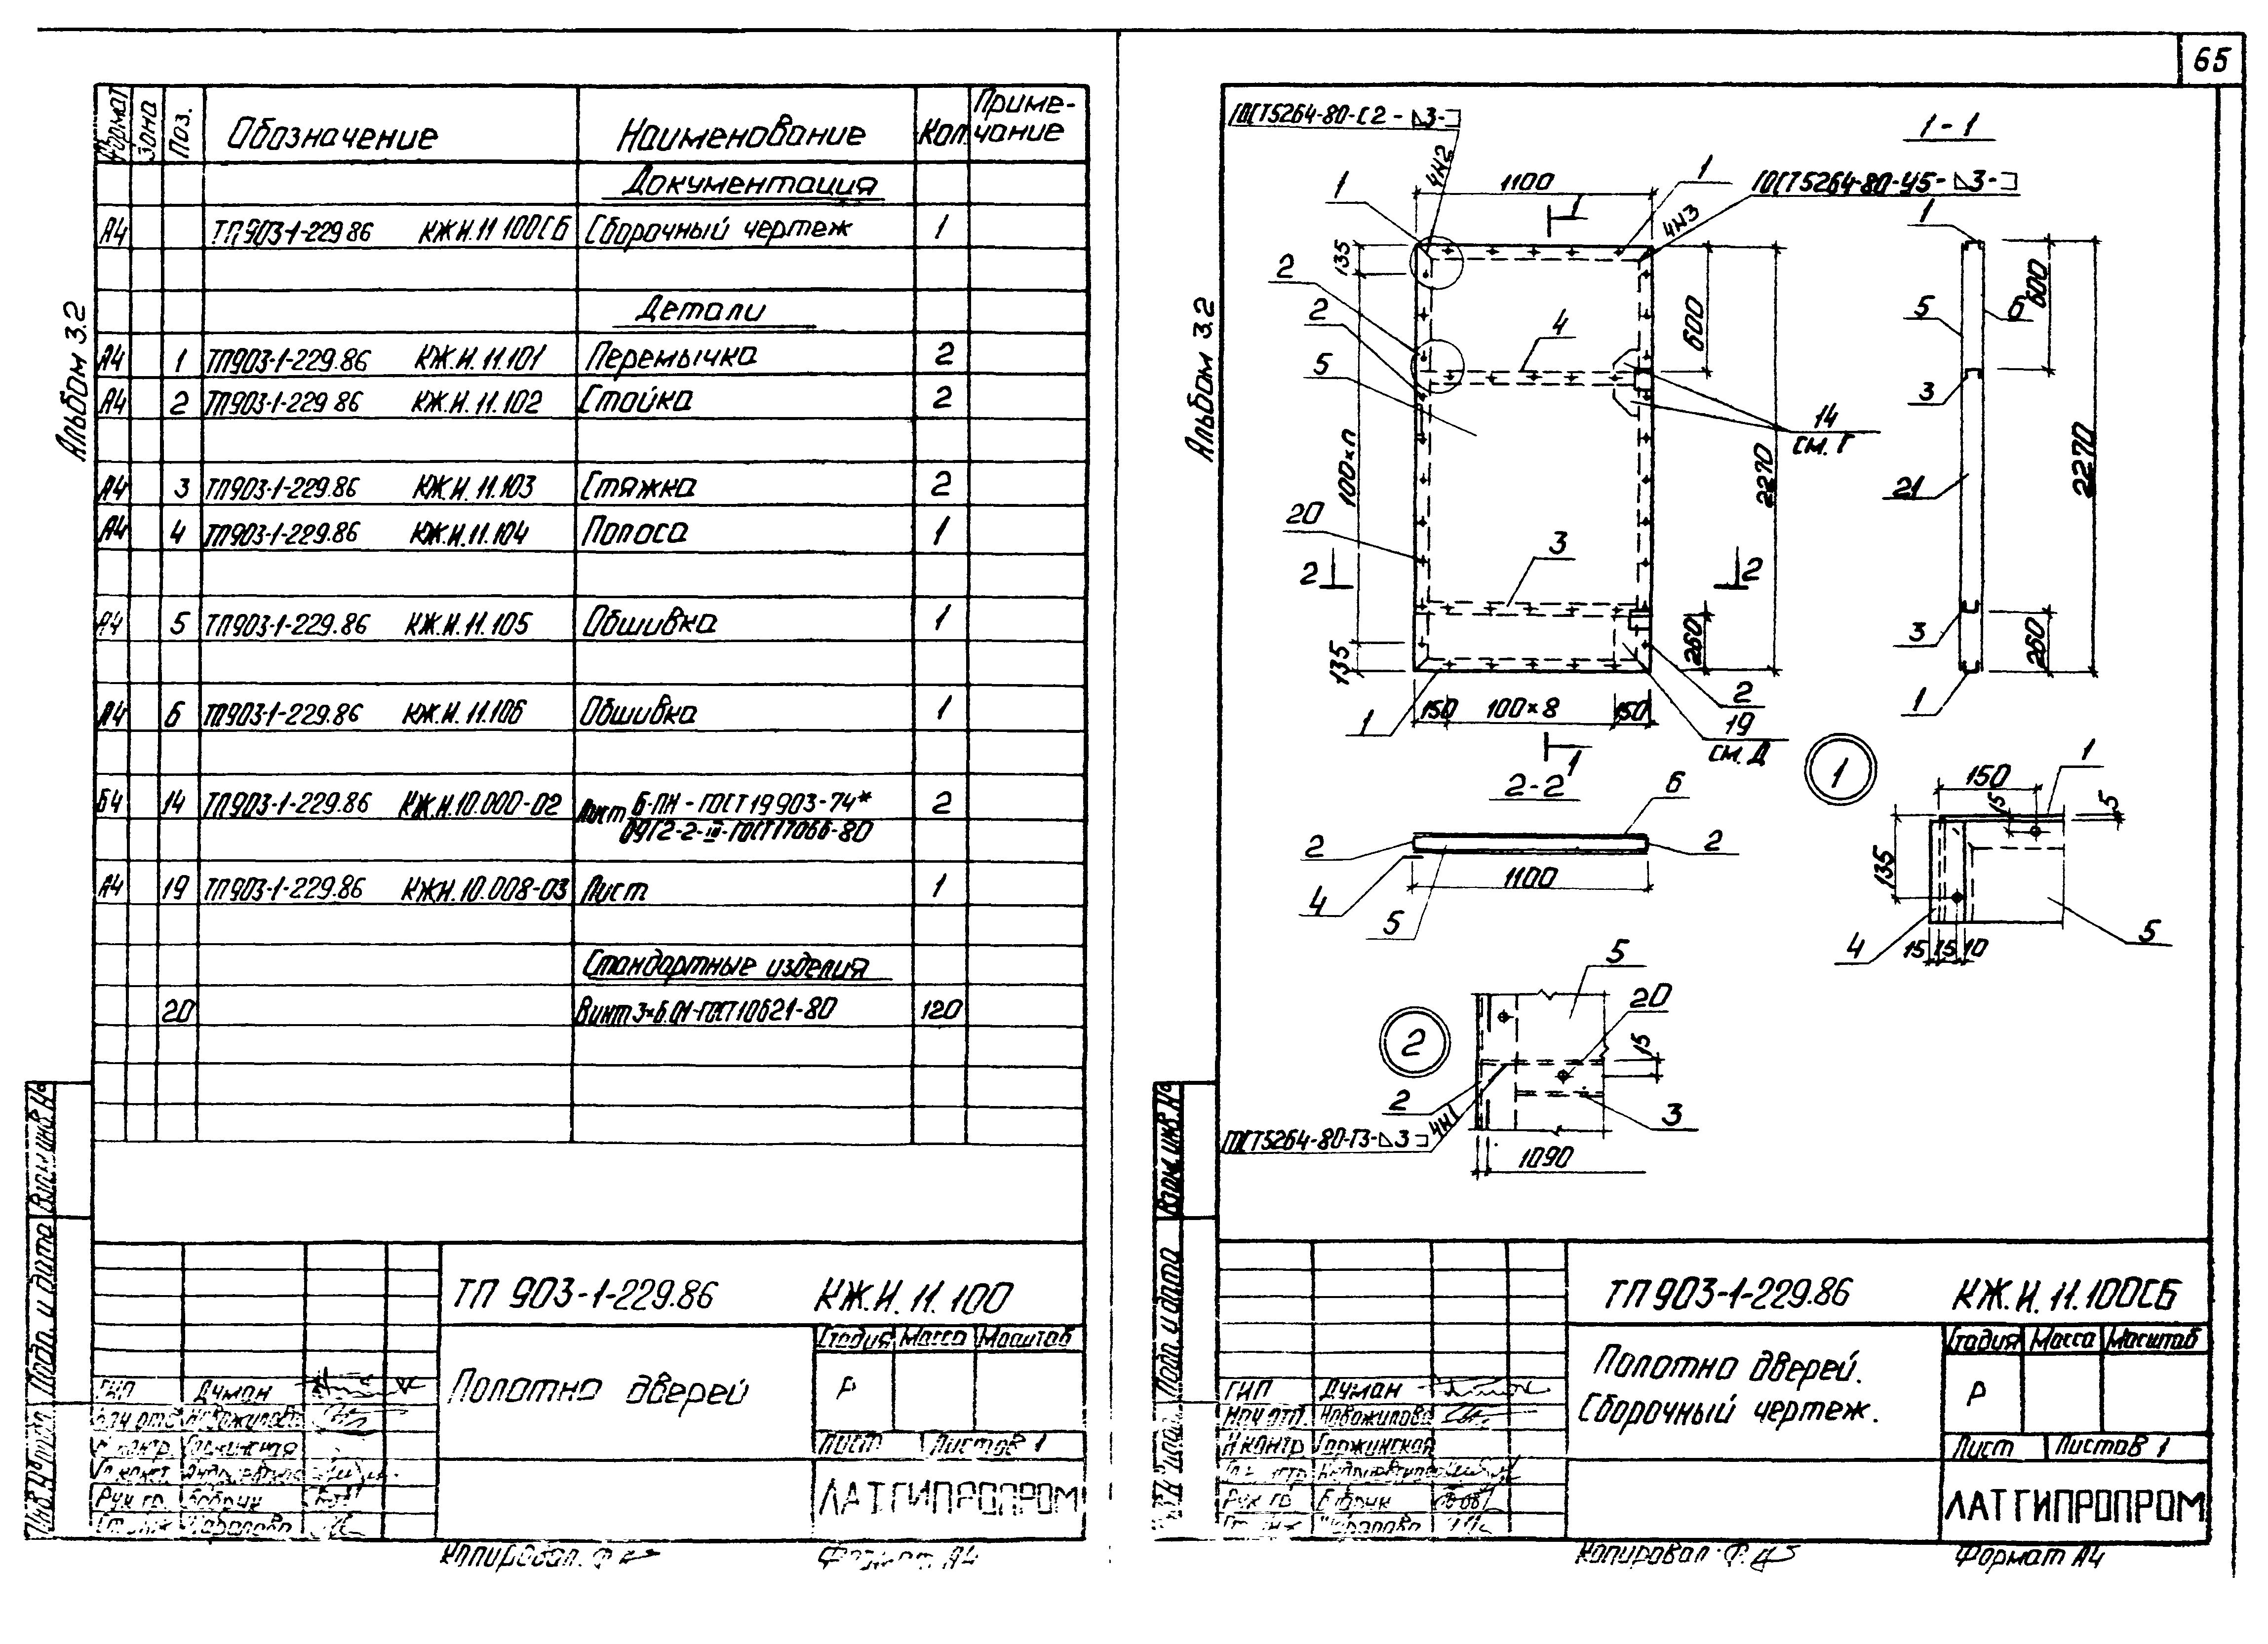 65
Альбом 3.2
Формат Зона Поз. Обозначение Наименование Кол. Приме-
чание
Документация
А4 ТП903-1-229.86 КЖ.И.11.100СБ Сборочный чертеж 1
Детали
А4 1 ТП903-1-229.86 КЖ.И.11.101 Перемычка 2
А4 2 ТП903-1-229.86 КЖ.И.11.102 Стойка 2
А4 3 ТП903-1-229.86 КЖ.И.11.103 Стяжка 2
А4 4 ТП903-1-229.86 КЖ.И.11.104 Полоса 1
А4 5 ТП903-1-229.86 КЖ.И.11.105 Обшивка 1
А4 6 ТП903-1-229.86 КЖ.И.11.106 Обшивка 1
Б4 14 ТП903-1-229.86 КЖ.И.10.000-02 Лист Б-ПН-ГОСТ19903-74* 2
09Г2-2-III-ГОСТ17066-80
А4 19 ТП903-1-229.86 КЖИ.10.008-03 Лист 1
Стандартные изделия
20 Винт 3×6.01-ГОСТ10621-80 120
Взам.инв.№
Подп. и дата
ТП 903-1-229.86 КЖ.И.11.100
Стадия Масса Масштаб
Полотно дверей
Р
Лист Листов 1
ЛАТГИПРОПРОМ
ГИП Думан
Нач отд Новожилова
Н контр Гаржинская
Рук гр. Бобрик
Копировал.
Формат А4
Альбом 3.2
ГОСТ5264-80-С2-⊿3-⊐
4Н2
1100
1
1
ГОСТ5264-80-У5-⊿3-⊐
4Н3
1-1
1
1
135
2
2
5
4
600
2270
14
см. Г
100×п
20
3
2
2
260
135
150 100×8 150
1
2
19
см. Д
1
1
5
6
600
3
21
2270
3
260
1
2-2
6
2
2
1100
4
5
1
150
1
15
5
135
4
5
15 15 10
2
5
20
15
2
3
ГОСТ5264-80-Т3-⊿3⊐
4Н1
1090
Взам.инв.№
Подп. и дата
ТП903-1-229.86 КЖ.И.11.100СБ
Стадия Масса Масштаб
Полотно дверей.
Сборочный чертеж.
Р
Лист Листов 1
ЛАТГИПРОПРОМ
ГИП Думан
Нач отд. Новожилова
Н контр Гаржинская
Рук гр Бобрик
Копировал
Формат А4